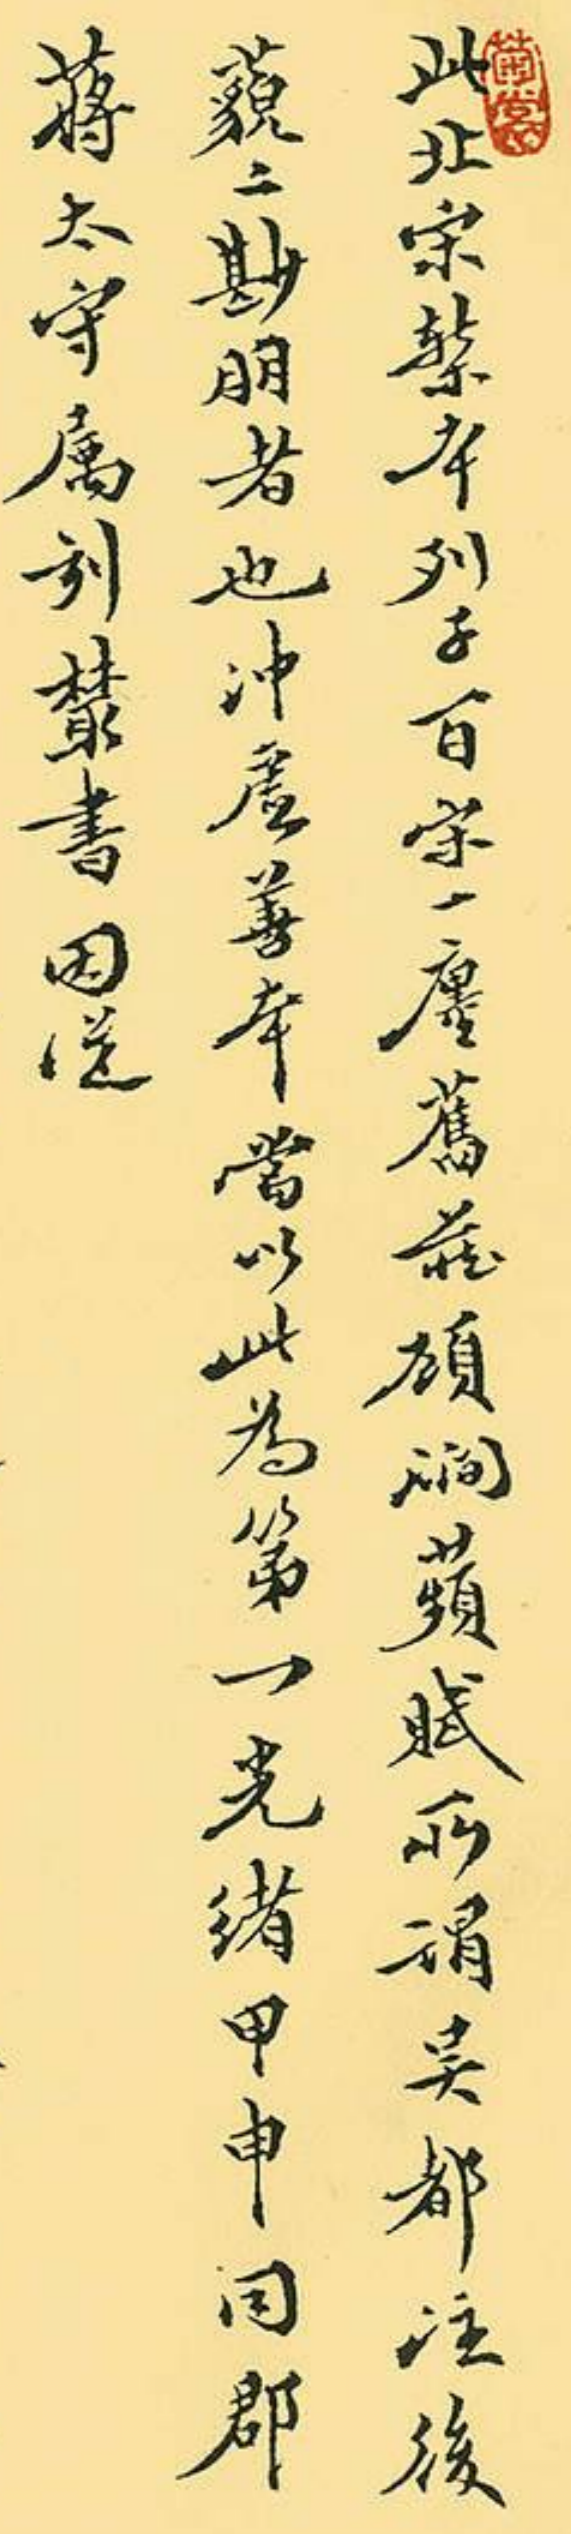 此北宋槧本列子百宋一廛舊藏顧澗薲賦所謂吳都注後
藐二斠朋者也沖虛善本當以此為第一光緒甲申同郡
蔣太守屬刻叢書因從